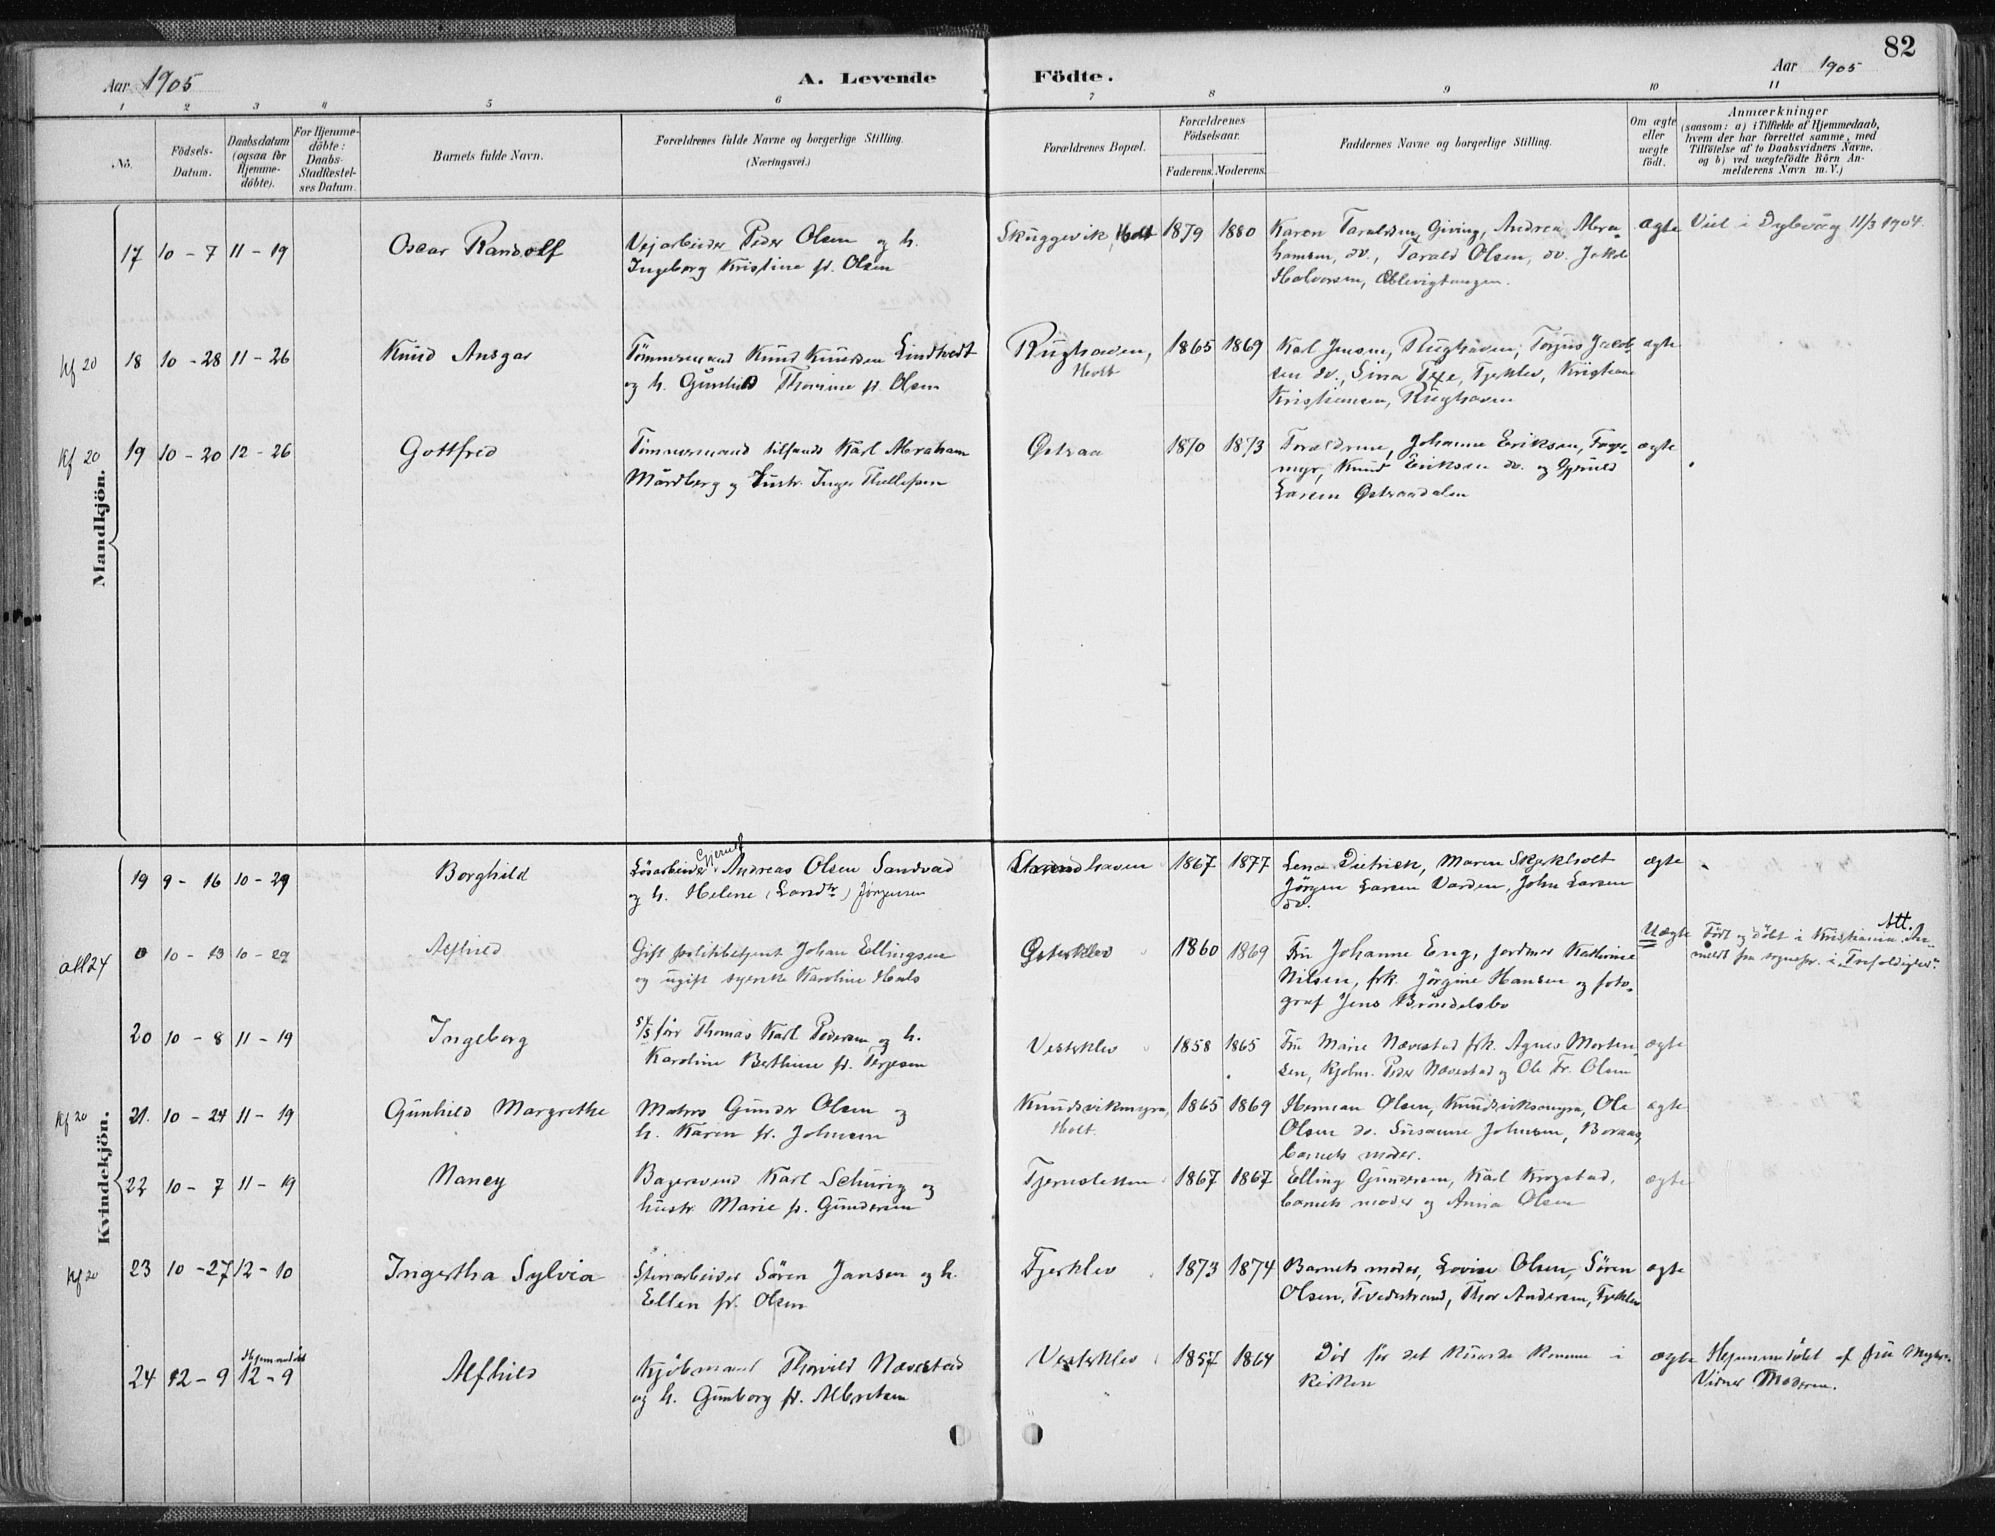 82
Aar 1905 A. Levende Födte. Aar 1905
1 2 3 4 5 6 7 8 9 10 11
No.
Födsels-
Datum.
Daabsdatum
(ogsaa for
Hjemme-
döbte).
For Hjemme-
döbte:
Daabs-
Stadfæstel-
ses Datum.
Barnets fulde Navn.
Forældrenes fulde Navne og borgerlige Stilling.
(Næringsvei.)
Forældrenes Bopæl.
Forældrenes
Födselsaar.
Faderens. Moderens.
Faddernes Navne og borgerlige Stilling.
Om ægte
eller
uægte
födt.
Anmærkninger
(saasom: a) i Tilfælde af Hjemmedaab,
hvem der har forrettet samme, med
Tilföielse af to Daabsvidners Navne,
og b) ved uægtefödte Börn An-
melderens Navn m. V.)
Mandkjön.
17 10 - 7 11 - 19 Oscar Randolf Vejarbeider Peder Olsen og h. Skuggevik, Holt 1879 1880 Karen Taraldsen, Giving, Andrea Abra- ægte Viet i Dybvåg 11/3 1904.
Ingeborg Kristine f. Olsen hamsen, do., Tarald Olsen, do. Jakob
Halvorsen,
Kf 20 18 10 - 28 11 - 26 Knud Ansgar Tømmermand Knud Knudsen Lindtvedt Rughaven, 1865 1869 Karl Jensen, Rughaven, Torjus Jacob- ægte
og h. Gunhild Thomine f. Olsen Holt sen do., Sina Fjerklev, Kristiane
Kristiansen, Rughaven
Kf 20 19 10 - 20 12 - 26 Gottfred Tømmermand tilsands Karl Abraham Østraa 1870 1873 Forældrene, Johanne Eriksen, Fage- ægte
Mårdberg og hustr. Inger Thellefsen myr, Knud Eriksen do. og
Larsen Østraadalen
Kvindekjön.
19 9 - 16 10 - 29 Borghild Løsarbeider Gjeruf Andreas Olsen Sandvad Strandhaven 1867 1877 Lena Dietrich, Maren Skjerkholt ægte
og h. Helene Jørgensen Jørgen Larsen Varden, John Larsen
do.
att 24 0 10 - 13 10 - 29 Alfhild Gift politibetjent Johan Ellingsen Østerklev 1860 1869 Fru Johanne Eng, jordmor Kathrine Uægte Født og døbt i Kristiania. Att. An-
og ugift syerske Karoline Hals Nilsen, frk. Jörgine Hansen og foto- meldt fra sognepr. i Trefoldighed.
graf Jens Bröndelsbo
20 10 - 8 11 - 19 Ingeborg før Thomas Karl Pedersen og h. Vesterklev 1858 1865 Fru Marie Nævestad frk. Agnes Morten- ægte
Karoline Bethine f. Terjesen sen, kjøbm. Peder Nævestad og Ole Fr. Olsen
Kf 20 21. 10 - 24 11 - 19 Gunhild Margrethe Matros Gunder Olsen og Knudsvikmyra, 1865 1869 Herman Olsen, Knudsviksmyra, Ole ægte
h. Karen f. Johnsen Holt. Olsen do. Susanne Johnsen, Boraas,
barnets moder.
22 10 - 7 11 - 19 Nancy Bagersvend Karl Schürig og Tjernsletten 1867 1867 Elling Gundersen, Karl Krogstad, ægte
hustr. Marie f. Gundersen barnets moder og Anna Olsen
Kf 20 23 10 - 27 12 - 10 Ingertha Sylvia Stenarbeider Sören Jansen og h. Fjerklev 1873 1874 Barnets moder, Lovise Olsen, Sören ægte
Ellen f. Olsen Olsen, Tvedestrand, Thor Andersen, Fjerklev
Hjemmedøbt
24 12 - 9 12 - 9 Alfhild Kjöbmand Thorvild Nævestad Vesterklev 1857 1864 Död för det kunde komme i ægte Hjemmedøbt af fru
og h. Gunborg f. Albretsen kirken Moderen.